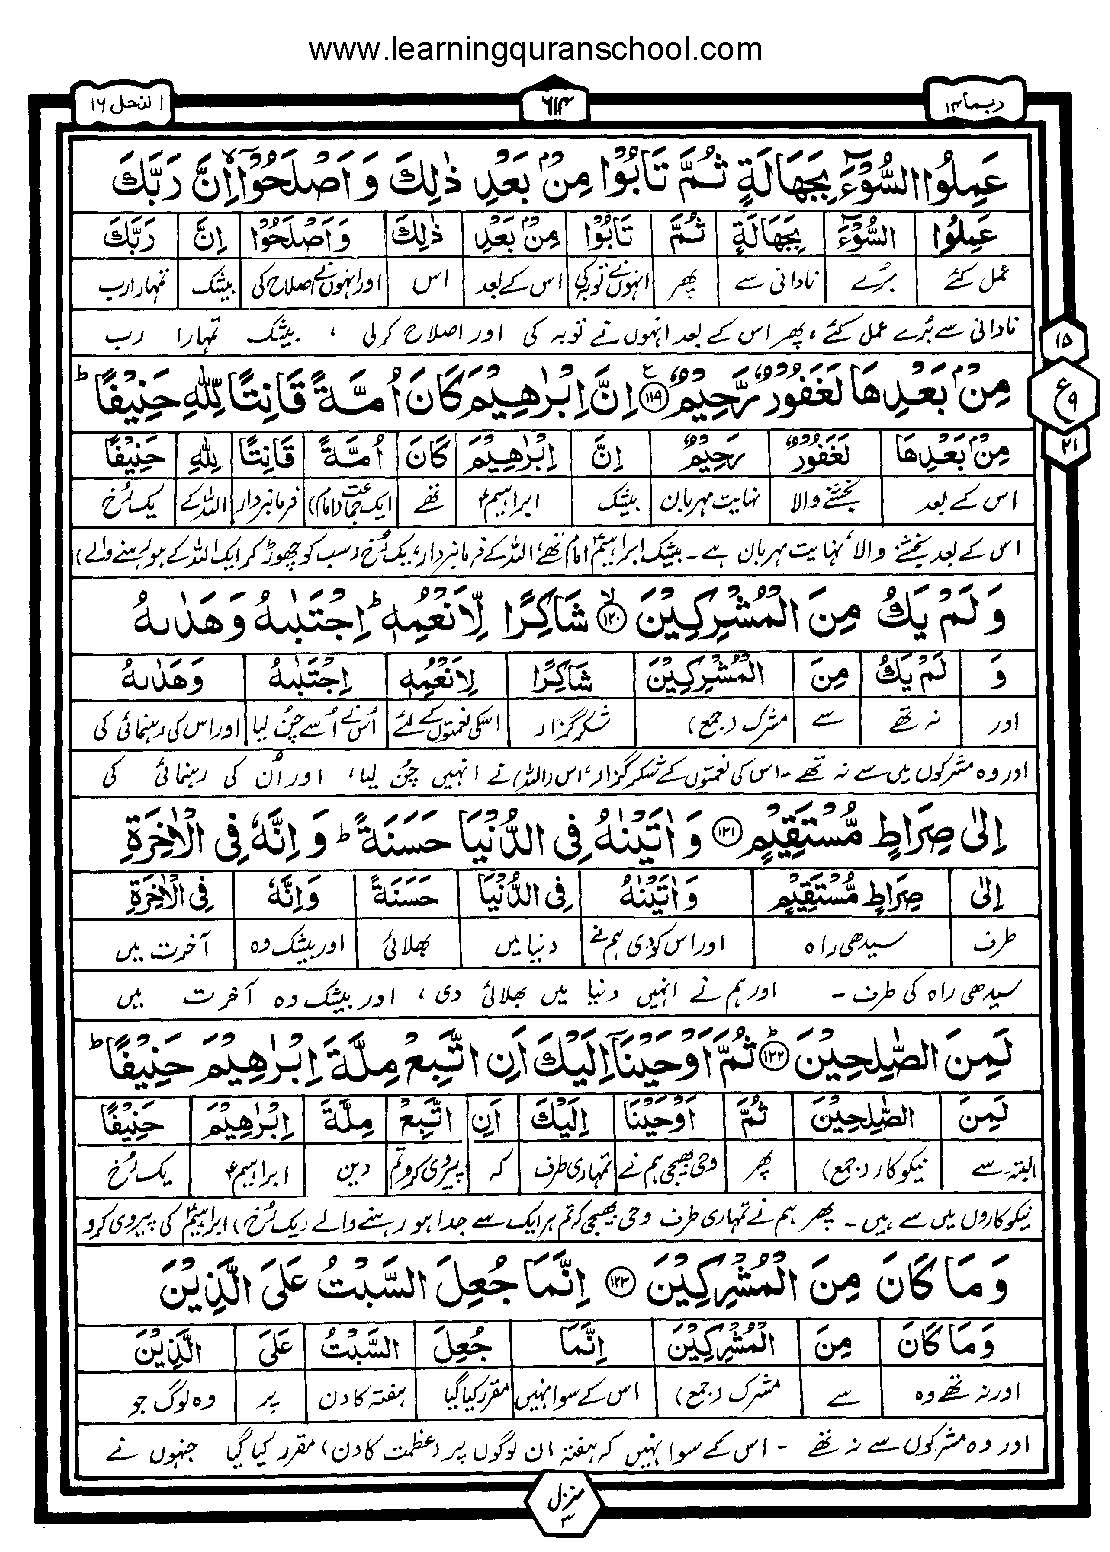 www.learningquranschool.com
ربما ۱۴
۶۱۴
النحل ۱۶
عَمِلُوا السُّوْٓءَ بِجَهَالَةٍ ثُمَّ تَابُوْا مِنْۢ بَعْدِ ذٰلِكَ وَ اَصْلَحُوْۤا ۙ اِنَّ رَبَّكَ
عَمِلُوا السُّوْٓءَ بِجَهَالَةٍ ثُمَّ تَابُوْا مِنْۢ بَعْدِ ذٰلِكَ وَاَصْلَحُوْا اِنَّ رَبَّكَ
عمل کئے بُرے نادانی سے پھر انہوں نے توبہ کی اس کے بعد اس اور انہوں نے اصلاح کی بیشک تمہارا رب
نادانی سے بُرے عمل کئے، پھر اس کے بعد انہوں نے توبہ کی اور اصلاح کرلی ، بیشک تمہارا رب
۱۵
مِنْۢ بَعْدِهَا لَغَفُوْرٌ رَّحِيْمٌ ۱۱۹ ع اِنَّ اِبْرٰهِيْمَ كَانَ اُمَّةً قَانِتًا لِّلّٰهِ حَنِيْفًا ؕ
ع ۹
۲۱
مِنْۢ بَعْدِهَا لَغَفُوْرٌ رَّحِيْمٌ اِنَّ اِبْرٰهِيْمَ كَانَ اُمَّةً قَانِتًا لِّلّٰهِ حَنِيْفًا
اس کے بعد بخشنے والا نہایت مہربان بیشک ابراہیمؑ تھے ایک جماعت (امام) فرمانبردار اللہ کے یک رُخ
اس کے بعد بخشنے والا نہایت مہربان ہے۔ بیشک ابراہیمؑ امام تھے اللہ کے فرمانبردار، یک رُخ (سب کو چھوڑ کر ایک اللہ کے ہو رہنے والے)
وَ لَمْ يَكُ مِنَ الْمُشْرِكِيْنَ ۙ ۱۲۰ شَاكِرًا لِّاَنْعُمِهٖ ؕ اِجْتَبٰىهُ وَ هَدٰىهُ
وَ لَمْ يَكُ مِنَ الْمُشْرِكِيْنَ شَاكِرًا لِّاَنْعُمِهٖ اِجْتَبٰىهُ وَهَدٰىهُ
اور نہ تھے سے مشرک (جمع) شکر گزار اسکی نعمتوں کے لئے اُس نے اُسے چُن لیا اور اس کی رہنمائی کی
اور وہ مشرکوں میں سے نہ تھے ۔ اس کی نعمتوں کے شکر گزار، اس (اللہ) نے انہیں چُن لیا، اور اُن کی رہنمائی کی
اِلٰى صِرَاطٍ مُّسْتَقِيْمٍ ۱۲۱ وَ اٰتَيْنٰهُ فِى الدُّنْيَا حَسَنَةً ؕ وَ اِنَّهٗ فِى الْاٰخِرَةِ
اِلٰى صِرَاطٍ مُّسْتَقِيْمٍ وَ اٰتَيْنٰهُ فِى الدُّنْيَا حَسَنَةً وَ اِنَّهٗ فِى الْاٰخِرَةِ
طرف سیدھی راہ اور اس کو دی ہم نے دنیا میں بھلائی اور بیشک وہ آخرت میں
سیدھی راہ کی طرف ۔ اور ہم نے انہیں دنیا میں بھلائی دی، اور بیشک وہ آخرت میں
لَمِنَ الصّٰلِحِيْنَ ؕ ۱۲۲ ثُمَّ اَوْحَيْنَاۤ اِلَيْكَ اَنِ اتَّبِعْ مِلَّةَ اِبْرٰهِيْمَ حَنِيْفًا ؕ
لَمِنَ الصّٰلِحِيْنَ ثُمَّ اَوْحَيْنَا اِلَيْكَ اَنِ اتَّبِعْ مِلَّةَ اِبْرٰهِيْمَ حَنِيْفًا
البتہ سے نیکوکار (جمع) پھر وحی بھیجی ہم نے تمہاری طرف کہ پیروی کرو تم دین ابراہیمؑ یک رُخ
نیکوکاروں میں سے ہیں۔ پھر ہم نے تمہاری طرف وحی بھیجی کہ تم ہر ایک سے جدا ہو رہنے والے (یک رُخ) ابراہیمؑ کی پیروی کرو
وَ مَا كَانَ مِنَ الْمُشْرِكِيْنَ ۱۲۳ اِنَّمَا جُعِلَ السَّبْتُ عَلَى الَّذِيْنَ
وَ مَا كَانَ مِنَ الْمُشْرِكِيْنَ اِنَّمَا جُعِلَ السَّبْتُ عَلَى الَّذِيْنَ
اور نہ تھے وہ سے مشرک (جمع) اس کے سوا نہیں مقرر کیا گیا ہفتہ کا دن پر وہ لوگ جو
اور وہ مشرکوں سے نہ تھے ۔ اس کے سوا نہیں کہ ہفتہ ان لوگوں پر (عظمت کا دن) مقرر کیا گیا جنہوں نے
منزل ۳